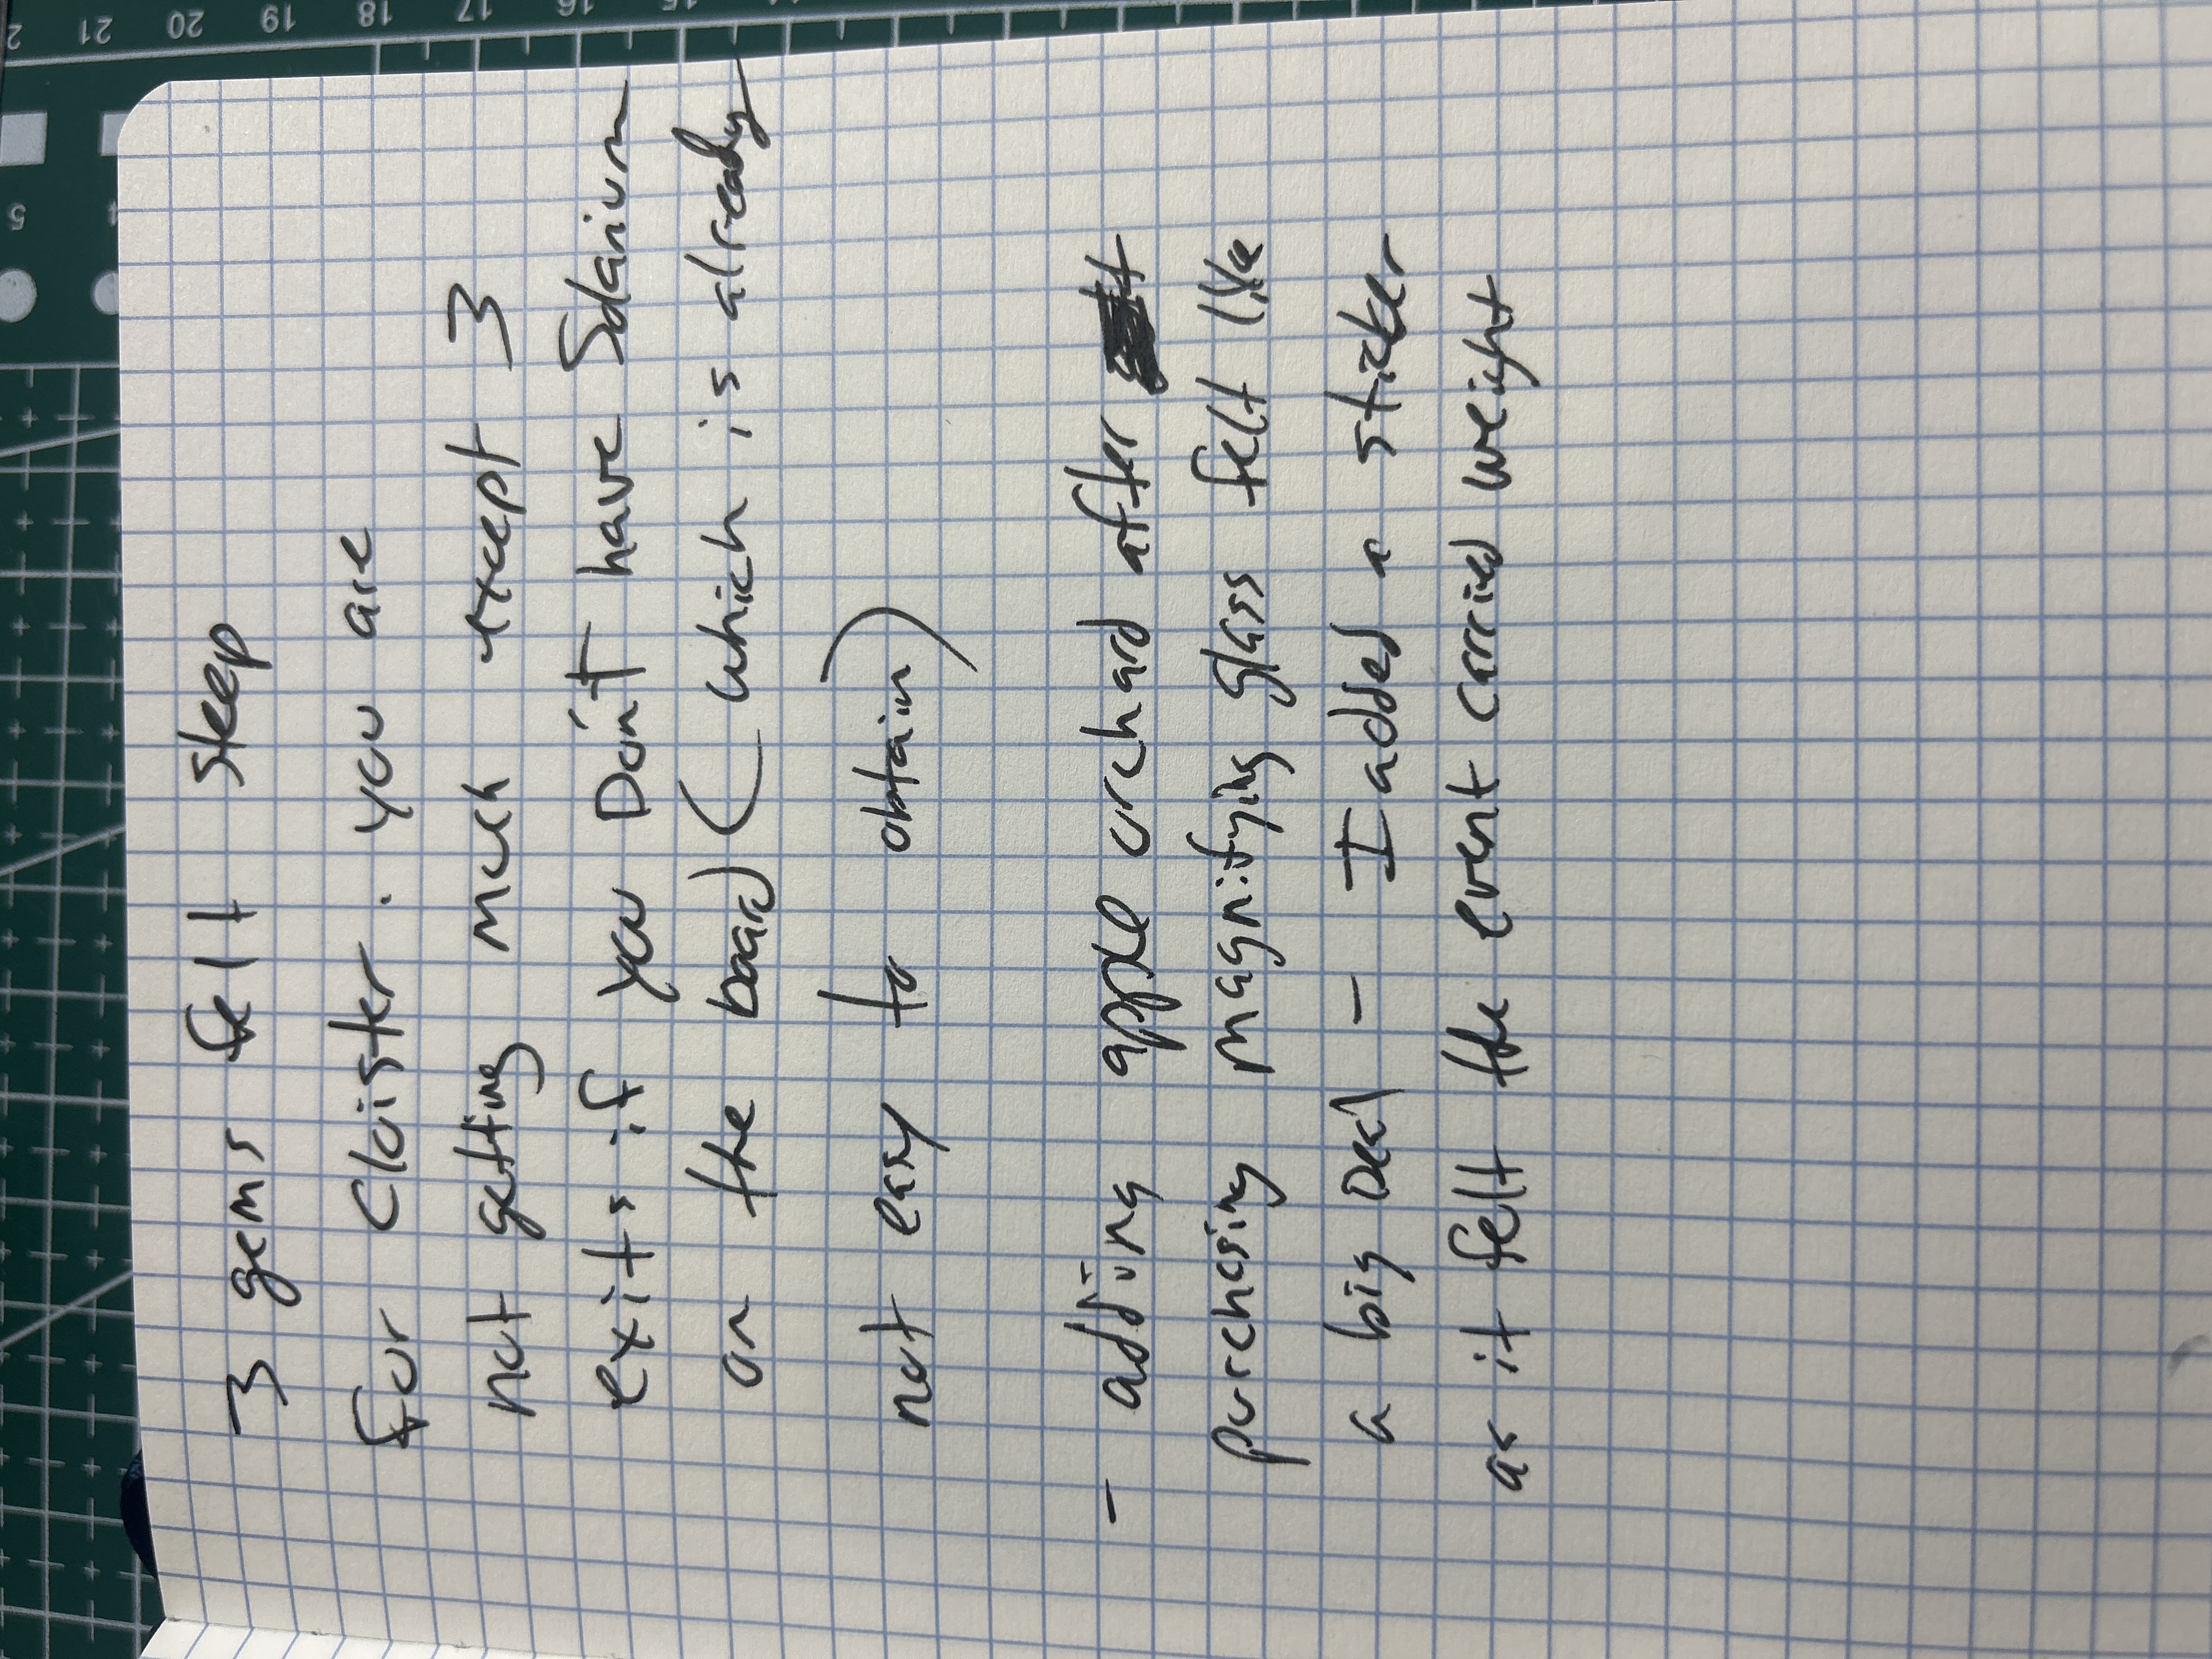 3 gems felt steep
for cloister. you are
not getting much except 3
exits if you Don't have Solarium
on the board (which is already
not easy to obtain)
- adding apple orchard after
purchesing magnifying glass felt like
a big Deal - I added a sticker
as it felt the event carried weight
2 21 20 19 18 17 16 15
5